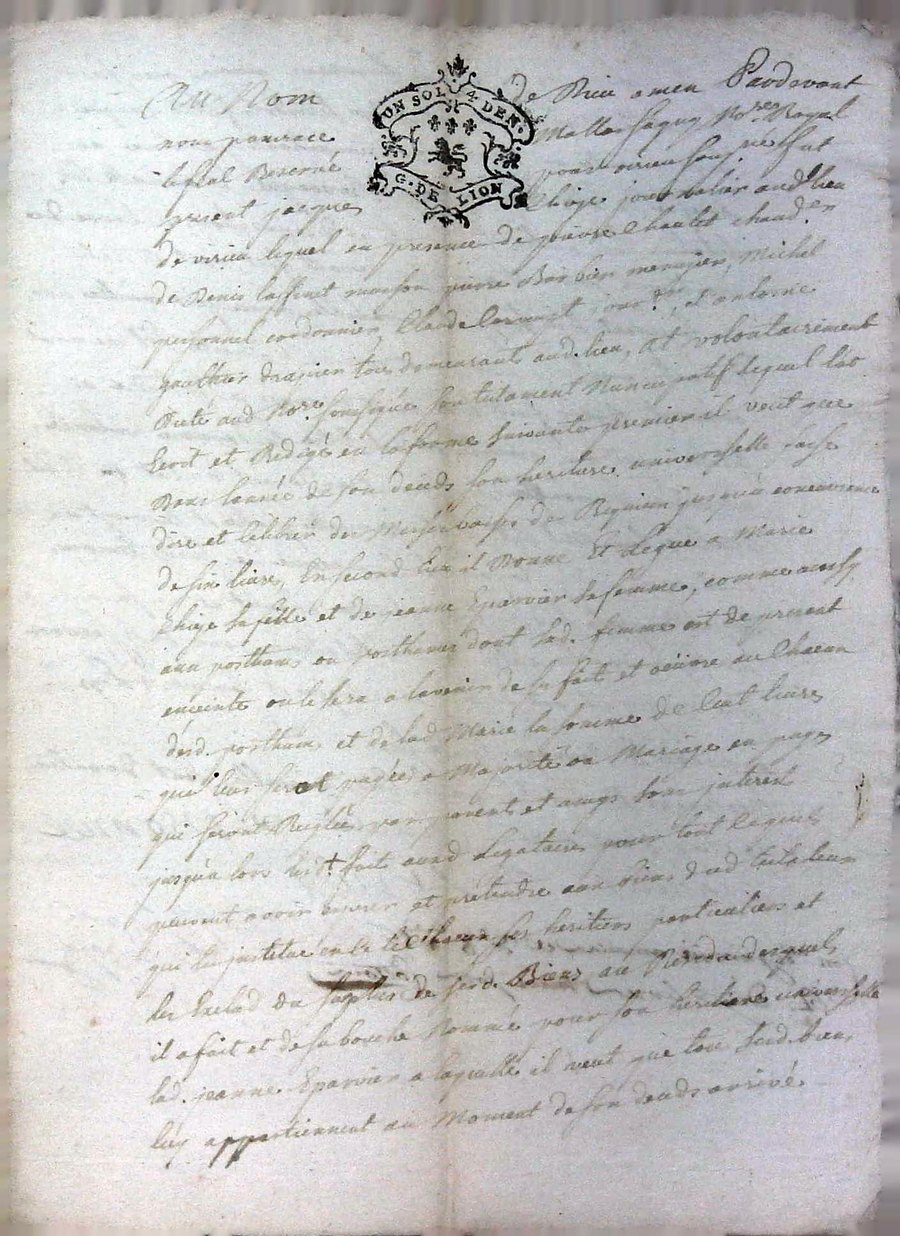 Au Nom de Dieu amen Pardevant
UN SOL 4 DEN.
G. DE LION
nous Notre Royal
reservé soussigné fut
present jacques Chize journalier audlieu
de virieu lequel en presence de pierre Chaulet
de Denis laffinet masson pierre Barbier menuisier, Michel
personnel cordonnier Claude jour et antoine
gauthier drapier tous demeurants audlieu, et volontairement
Dicté aud Nore soussigné son testament Nuncupatif lequel
Ecrit et Redigé en la forme suivante premier il veut que
Dans lannée de son deceds son heritiere universelle fasse
dire et celebrer des Messes basses de Requiem jusqu'a concurrence
de six livres, En second lieu il Donne et Legue a Marie
Chize sa fille et de jeanne Eparvier sa femme, comme aussy
aux posthume ou posthumes dont lad. femme est de present
enceinte ou le sera a lavenir de son fait et oeuvre au Chacun
desd. posthumes et de lad Marie la somme de Cent livres
qui leur seront payées a Majorité ou Mariage en payes
qui seront Reglées par parents et amys sans interest
jusqu'a lors led. fait auxd Legataires pour tout ce quils
peuvent avoir et pretendre aux biens dud testateur
qui les institue en ce ses heritiers particuliers et
les Exclud du surplus de sesd. Biens au Residu desquels
il a fait et de sa bouche Nommé pour son heritiere universelle
lad. jeanne Eparvier a laquelle il veut que tous sesd. biens
luy appartiennent au Moment de son deceds arrivé